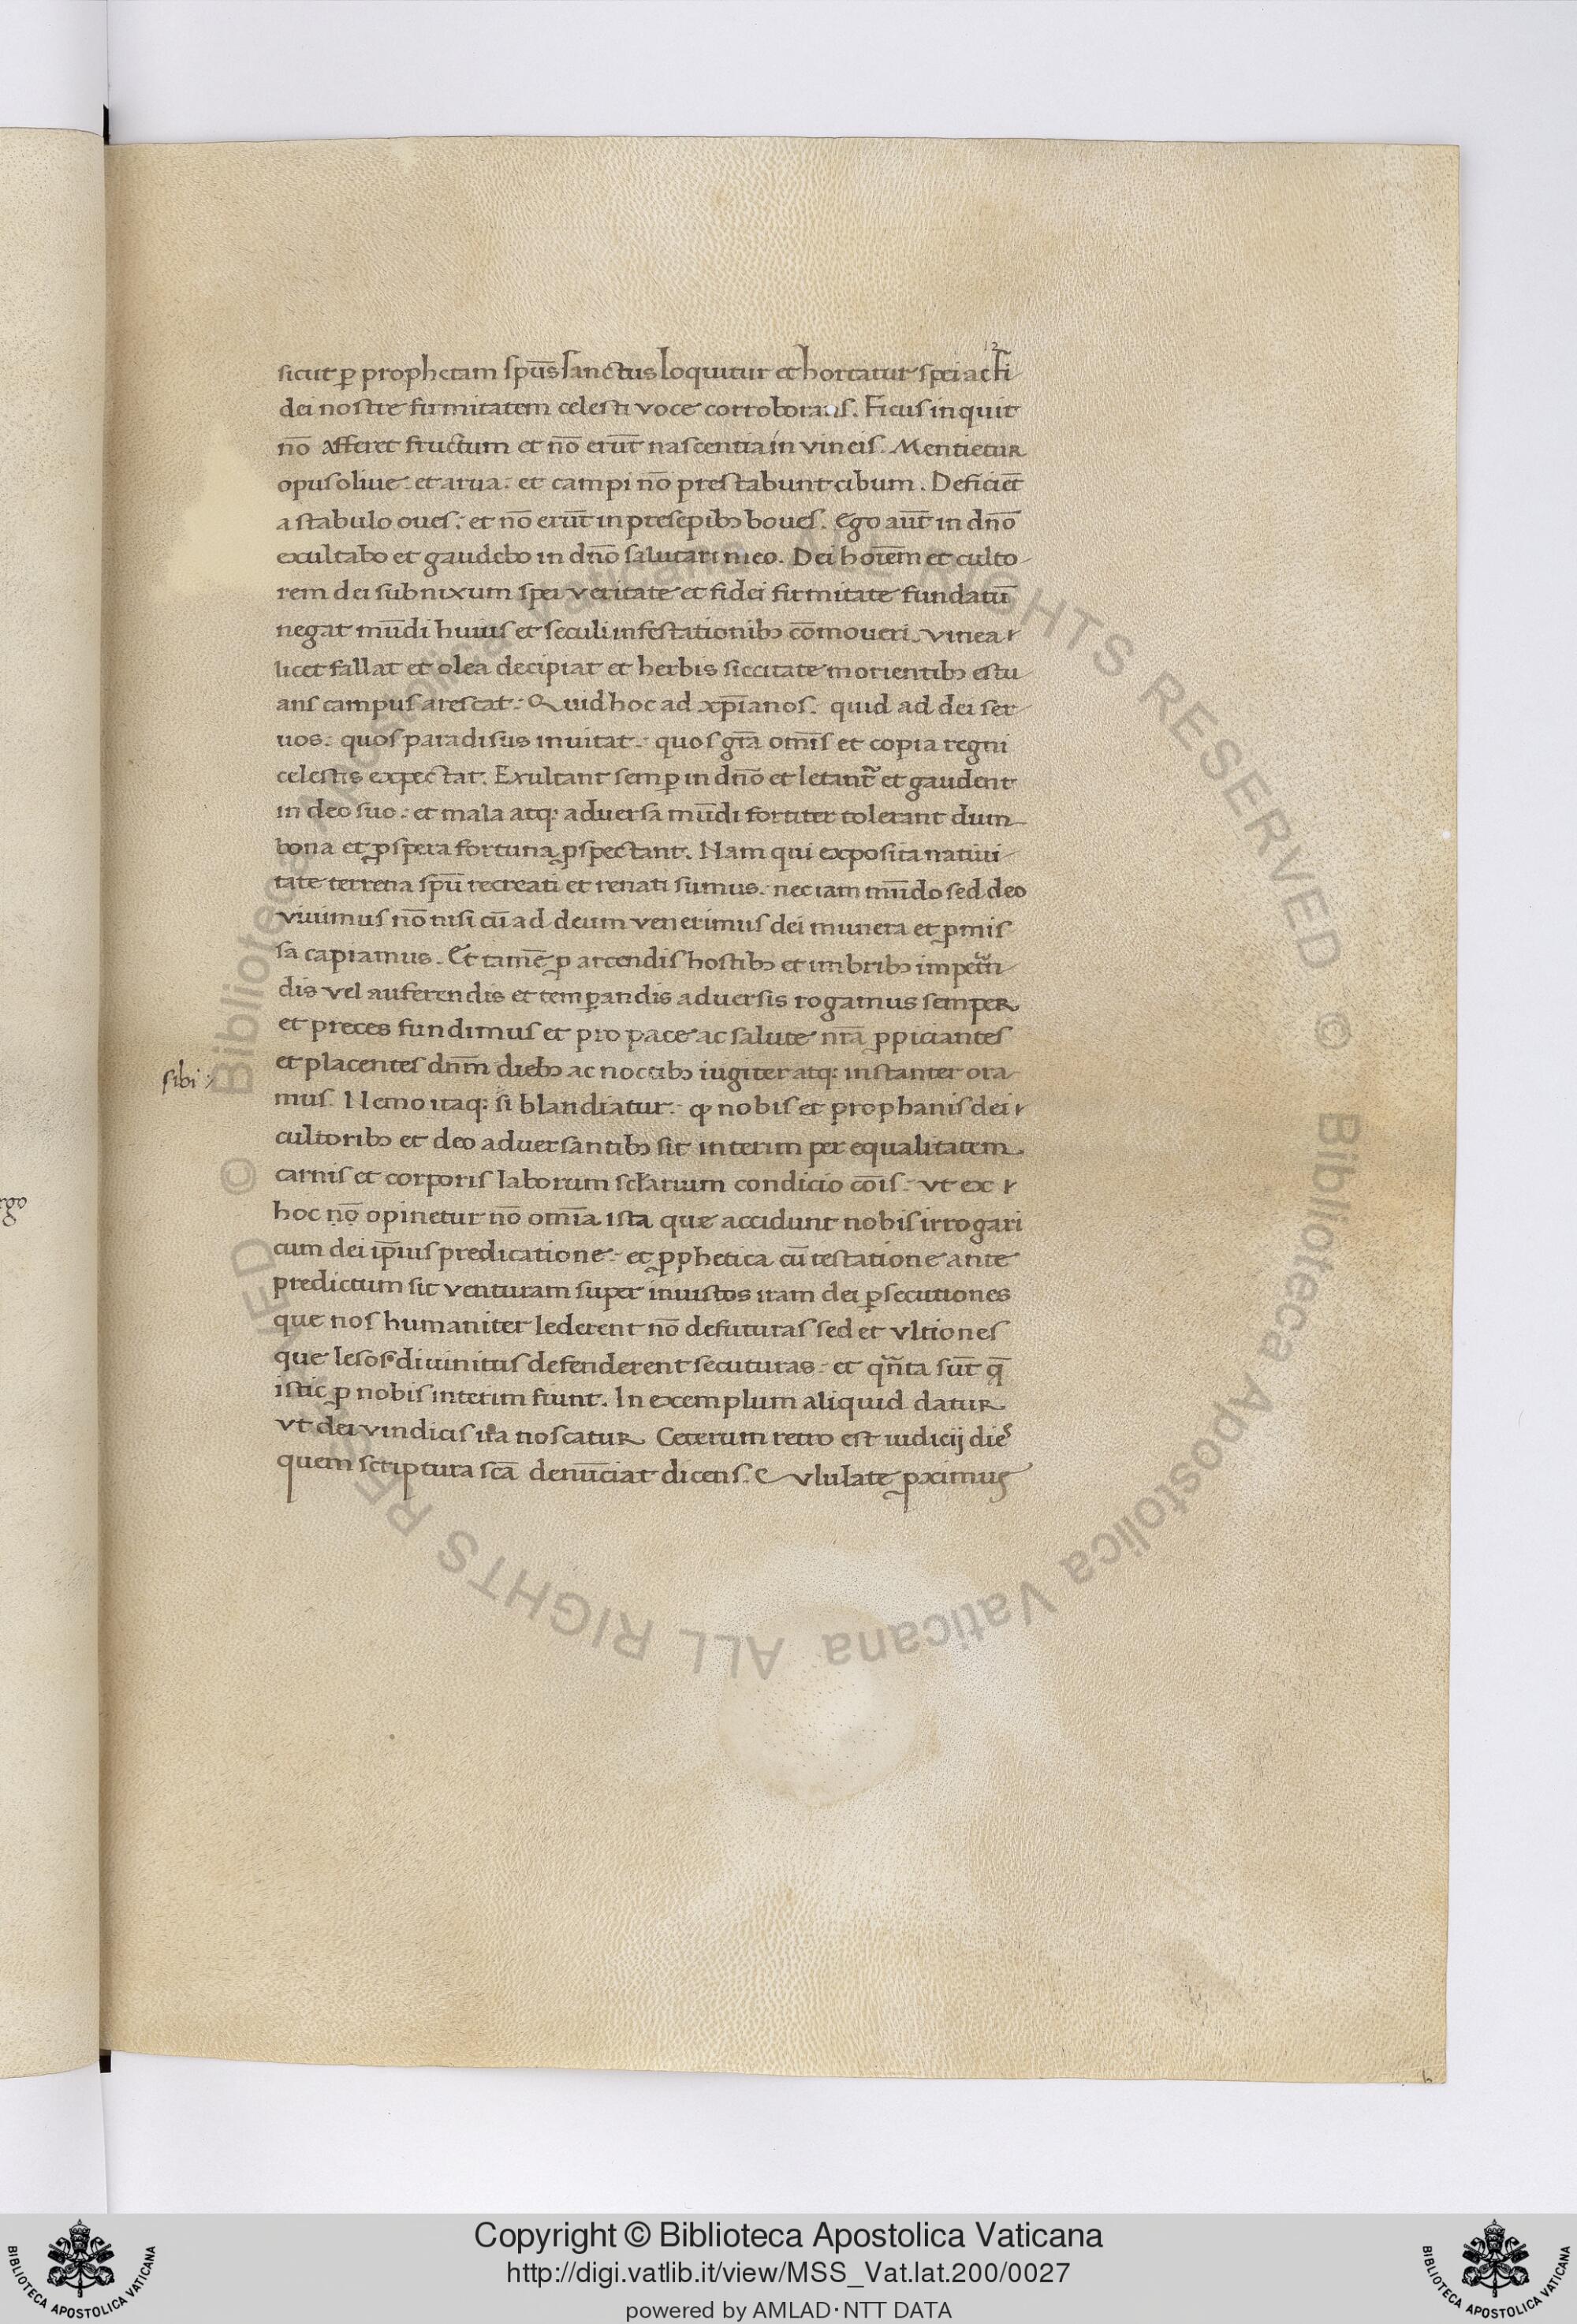 12
sicut ꝑ prophetam sp̅u̅s sanctus loquitur et hortatur spei ac fi
dei nostre firmitatem celesti voce corroborans. Ficus inquit
no̅ afferet fructum et no̅ eru̅t nascentia in vineis. Mentietur
opus oliue. et arua. et campi no̅ prestabunt cibum. Deficie̅t
a stabulo oues. et no̅ eru̅t in presepibꝫ boues. Ego au̅t in dn̅o
exultabo et gaudebo in dn̅o salutari meo. Dei hoi̅em et culto
rem dei subnixum spei veritate et fidei firmitate fundatu̅
negat mu̅di huius et seculi infestationibꝫ co̅moueri. vinea
licet fallat et olea decipiat et herbis siccitate morientibꝫ estu
ans campus arescat. Quid hoc ad xp̅ianos. quid ad dei ser
uos. quos paradisus inuitat. quos gr̅a omi̅s et copia regni
celestis expectat. Exultant semꝑ in dn̅o et letant̃ et gaudent
in deo suo. et mala atqꝫ aduersa mu̅di fortiter tolerant dum
bona et ꝓspera fortuna ꝓspectant. Nam qui exposita natiui
tate terrena sp̅u recreati et renati sumus. nec iam mu̅do sed deo
viuimus no̅ nisi cu̅ ad deum venerimus dei munera et ꝓmis
sa capiamus. Et tame̅ ꝓ arcendis hostibꝫ et imbribꝫ impet̃n
dis vel auferendis et temꝑandis aduersis rogamus semper
et preces fundimus et pro pace ac salute nr̅a ꝓpiciantes
et placentes dn̅m diebꝫ ac noctibꝫ iugiter atqꝫ instanter ora
sibi
mus. Nemo itaqꝫ si blandiatur. ꝙ nobis et prophanis dei
cultoribꝫ et deo aduersantibꝫ sit interim per equalitatem
carnis et corporis laborum sclarium condicio co̅is. vt ex
hoc no̅ opinetur no̅ omi̅a ista que accidunt nobis irrogari
cum dei ip̅ius predicatione. et ꝓphetica cu̅testatione ante
predictum sit venturam super iniustos iram dei ꝑsecutiones
que nos humaniter lederent no̅ defuturas sed et vltiones
que lesos diuinitus defenderent secuturas. et qñta su̅t q̅
istic ꝓ nobis interim fiunt. In exemplum aliquid datur
vt dei vindicis ira noscatur. Ceterum retro est iudicij dies
quem scriptura sc̅a denu̅ciat dicens. Vlulate ꝓximus
Copyright © Biblioteca Apostolica Vaticana
http://digi.vatlib.it/view/MSS_Vat.lat.200/0027
powered by AMLAD·NTT DATA
© Biblioteca Apostolica Vaticana ALL RIGHTS RESERVED © Biblioteca Apostolica Vaticana ALL RIGHTS RESERVED
BIBLIOTECA APOSTOLICA VATICANA
BIBLIOTECA APOSTOLICA VATICANA